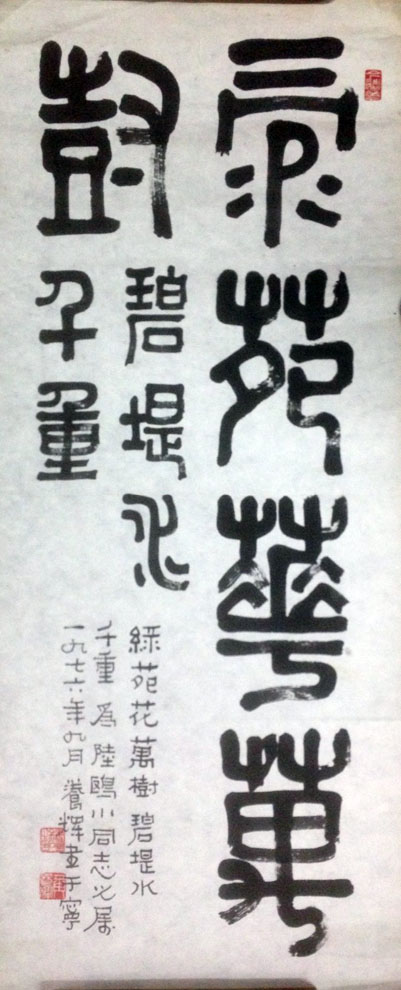 彔苑華萬
尌
碧堤水
千重
綠苑花萬樹碧堤水
千重 爲陸鷗小同志之属
一九七六年九月 養輝書于寧